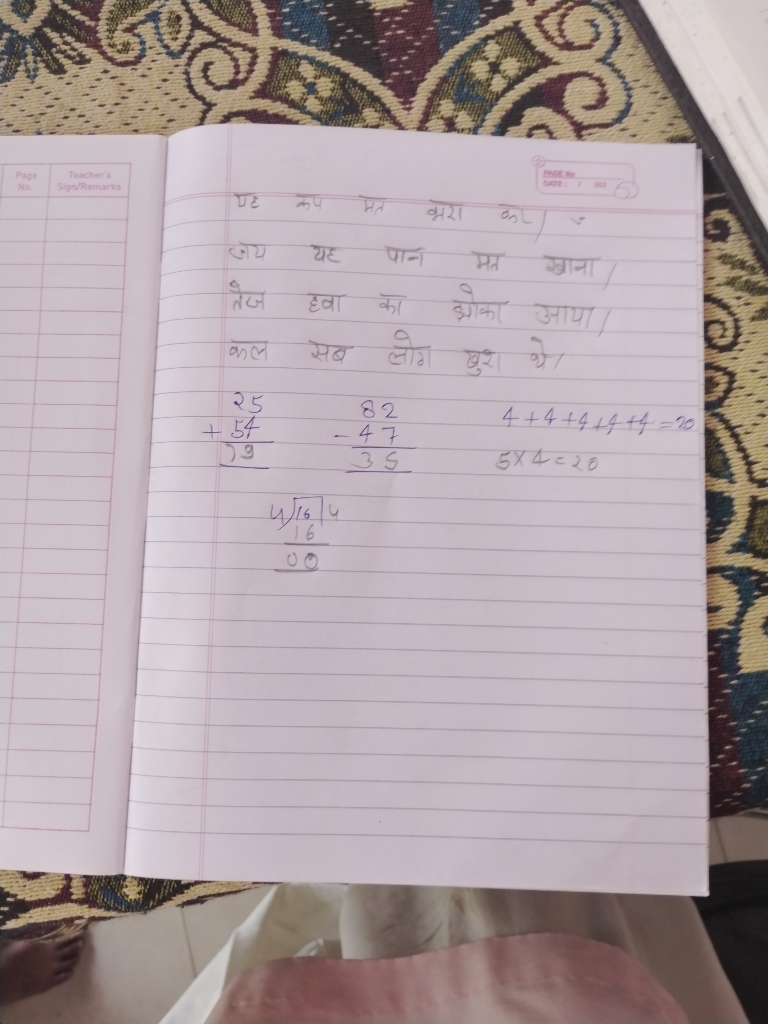 Page No. Teacher's Sign/Remarks
PAGE No.
DATE: / 202
यह कप मत भरा कर।
जय यह पान मत खाना।
तेज हवा का झोका आया।
कल सब लोग खुश थे।
25 82 4+4+4+4+4=20
+ 54 - 47
79 35 5×4=20
4)16(4
16
00